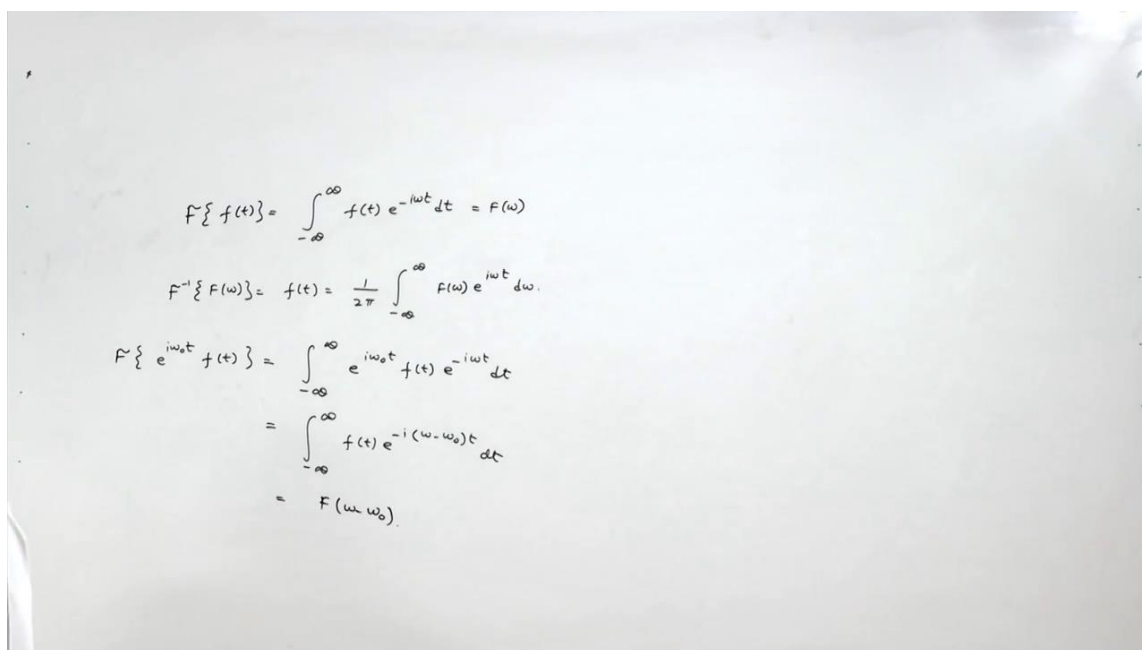 F{ f(t)} = ∫_{-∞}^{∞} f(t) e^{-iωt} dt = F(ω)
F⁻¹{ F(ω)} = f(t) = 1/2π ∫_{-∞}^{∞} F(ω) e^{iωt} dω.
F{ e^{iω₀t} f(t) } = ∫_{-∞}^{∞} e^{iω₀t} f(t) e^{-iωt} dt
= ∫_{-∞}^{∞} f(t) e^{-i(ω-ω₀)t} dt
= F(ω-ω₀).